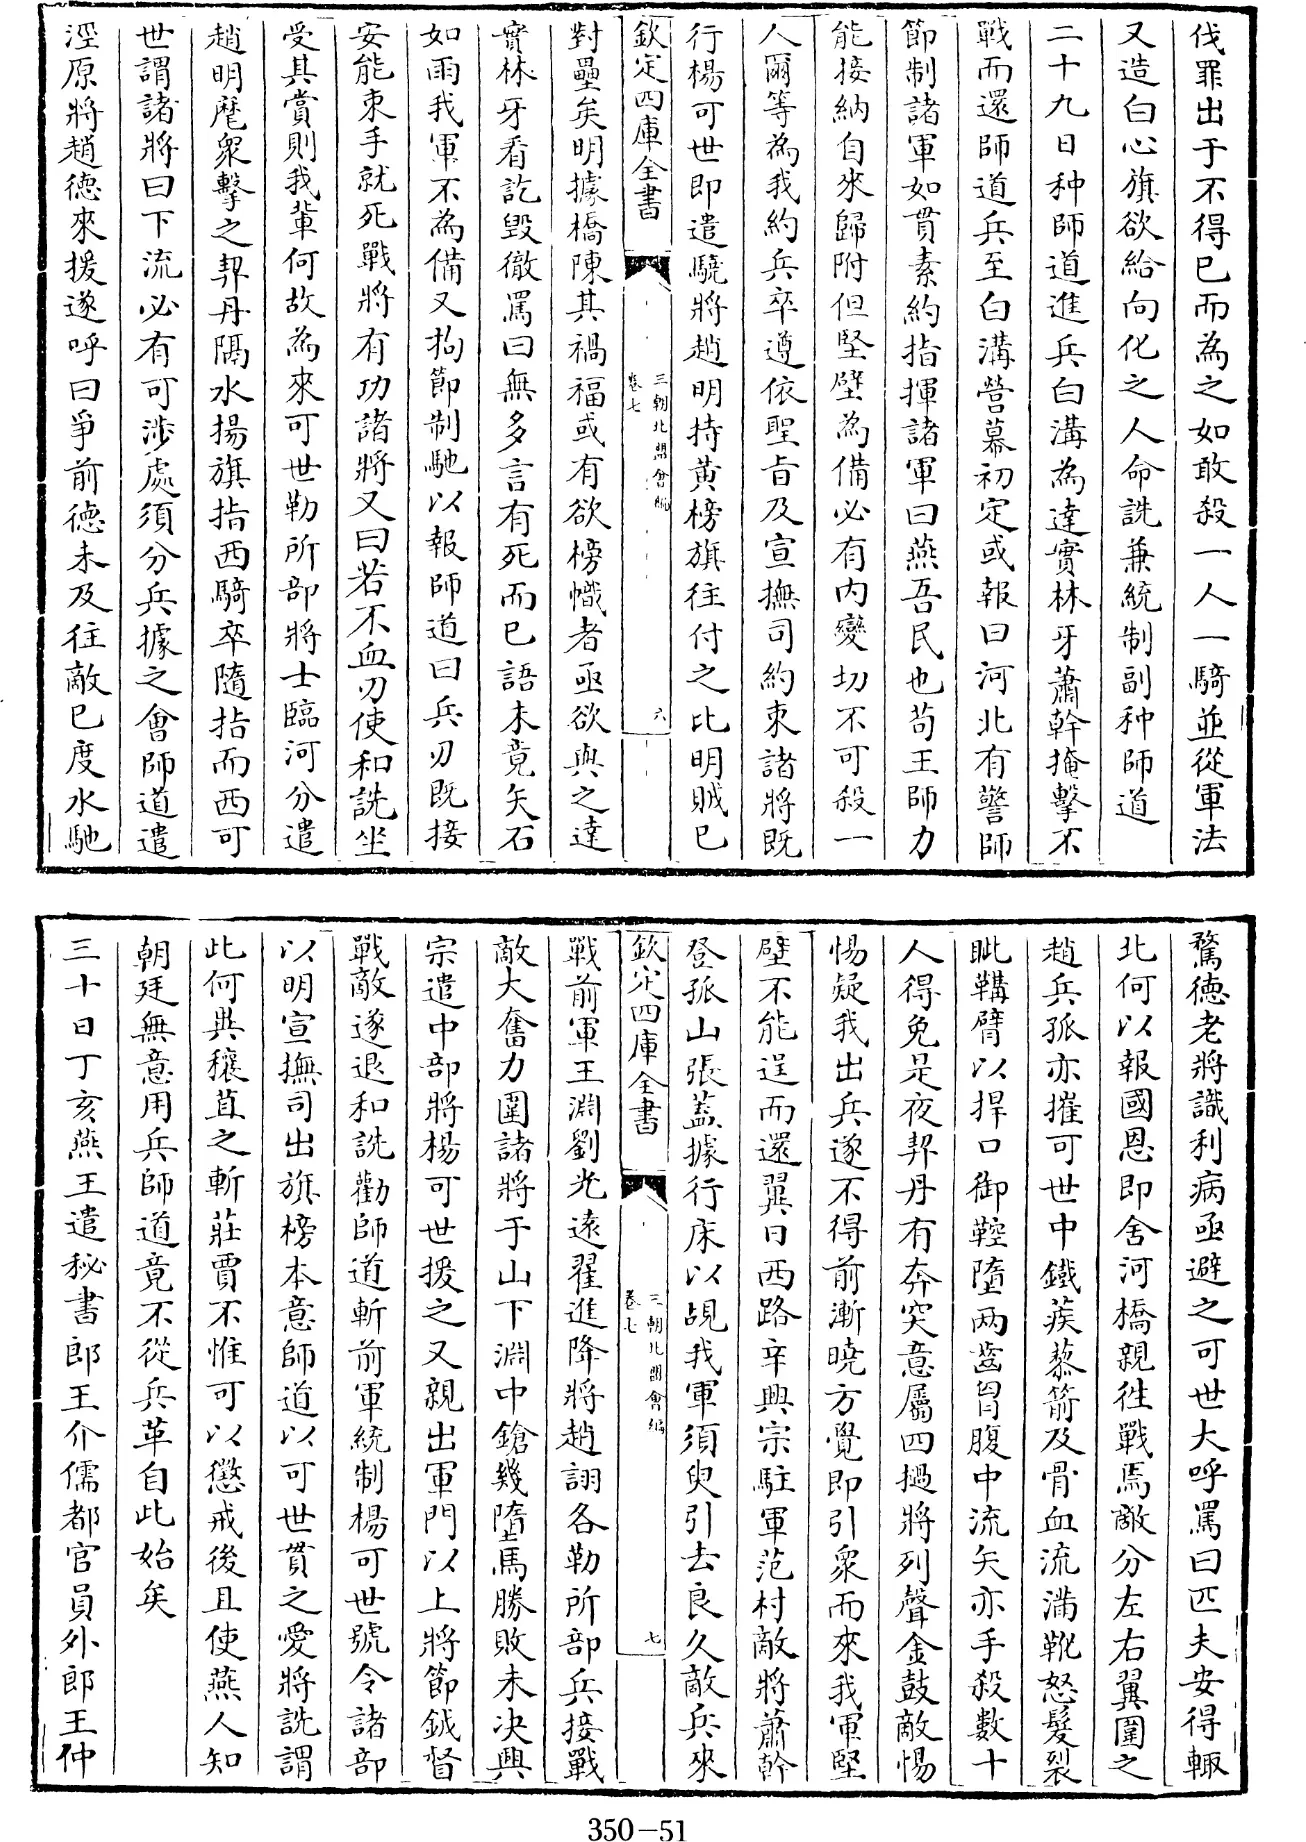 伐罪出于不得已而為之如敢殺一人一騎並從軍法
又造白心旗欲給向化之人命詵兼統制副种師道
二十九日种師道進兵白溝為達實林牙蕭幹掩擊不
戰而還師道兵至白溝營幕初定或報曰河北有警師
節制諸軍如貫素約指揮諸軍曰燕吾民也苟王師力
能接納自來歸附但堅壁為備必有内變切不可殺一
人爾等為我約兵卒遵依聖旨及宣撫司約束諸將既
行楊可世即遣驍將趙明持黃榜旗往付之比明賊已
欽定四庫全書
三朝北盟會編
卷七
六
對壘矣明據橋陳其禍福或有欲榜幟者亟欲與之達
實林牙看訖毀徹罵曰無多言有死而已語未竟矢石
如雨我軍不為備又拘節制馳以報師道曰兵刃既接
安能束手就死戰將有功諸將又曰若不血刃使和詵坐
受其賞則我輩何故為來可世勒所部將士臨河分遣
趙明麾衆擊之契丹隔水揚旗指西騎卒隨指而西可
世謂諸將曰下流必有可涉處須分兵據之會師道遣
涇原將趙德來援遂呼曰爭前德未及往敵已度水馳
騖德老將識利病亟避之可世大呼罵曰匹夫安得輙
北何以報國恩即舍河橋親徃戰焉敵分左右翼圍之
趙兵孤亦摧可世中鐵蒺藜箭及骨血流滿靴怒髮裂
眦鞲臂以捍口御鞚墮两齒胷腹中流矢亦手殺數十
人得免是夜契丹有奔突意屬四撾將列聲金鼓敵惕
惕疑我出兵遂不得前漸曉方覺即引衆而來我軍堅
壁不能逞而還翼日西路辛興宗駐軍范村敵將蕭幹
登孤山張蓋據行床以覘我軍須臾引去良久敵兵來
欽定四庫全書
三朝北盟會編
卷七
七
戰前軍王淵劉光遠翟進降將趙詡各勒所部兵接戰
敵大奮力圍諸將于山下淵中鎗幾墮馬勝敗未决興
宗遣中部將楊可世援之又親出軍門以上將節鉞督
戰敵遂退和詵勸師道斬前軍統制楊可世號令諸部
以明宣撫司出旗榜本意師道以可世貫之愛將詵謂
此何異穰苴之斬莊賈不惟可以懲戒後且使燕人知
朝廷無意用兵師道竟不從兵革自此始矣
三十日丁亥燕王遣秘書郎王介儒都官員外郎王仲
350-51